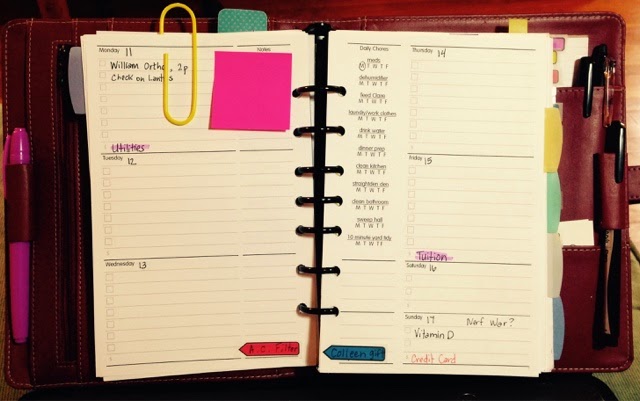 Monday 11
Notes
William Ortho, 2p
Check on Lantus
Utilities
Tuesday
12
Wednesday 13
A.C. Filter
Daily Chores
meds
M T W T F
dehumidifier
M T W T F
feed Claire
M T W T F
laundry/work clothes
M T W T F
drink water
M T W T F
dinner prep
M T W T F
clean kitchen
M T W T F
straighten den
M T W T F
clean bathroom
M T W T F
sweep hall
M T W T F
10 minute yard tidy
M T W T F
Colleen gift
Thursday
14
Friday
15
Tuition
Saturday
16
Sunday 17 Nerf War?
Vitamin D
Credit Card